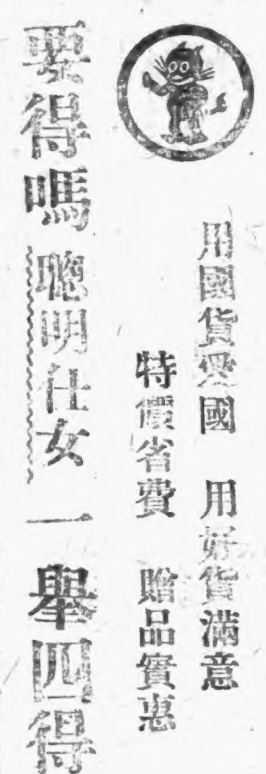 用國貨愛國　用好貨滿意
特價省費　贈品實惠
要得嗎聰明仕女一舉四得